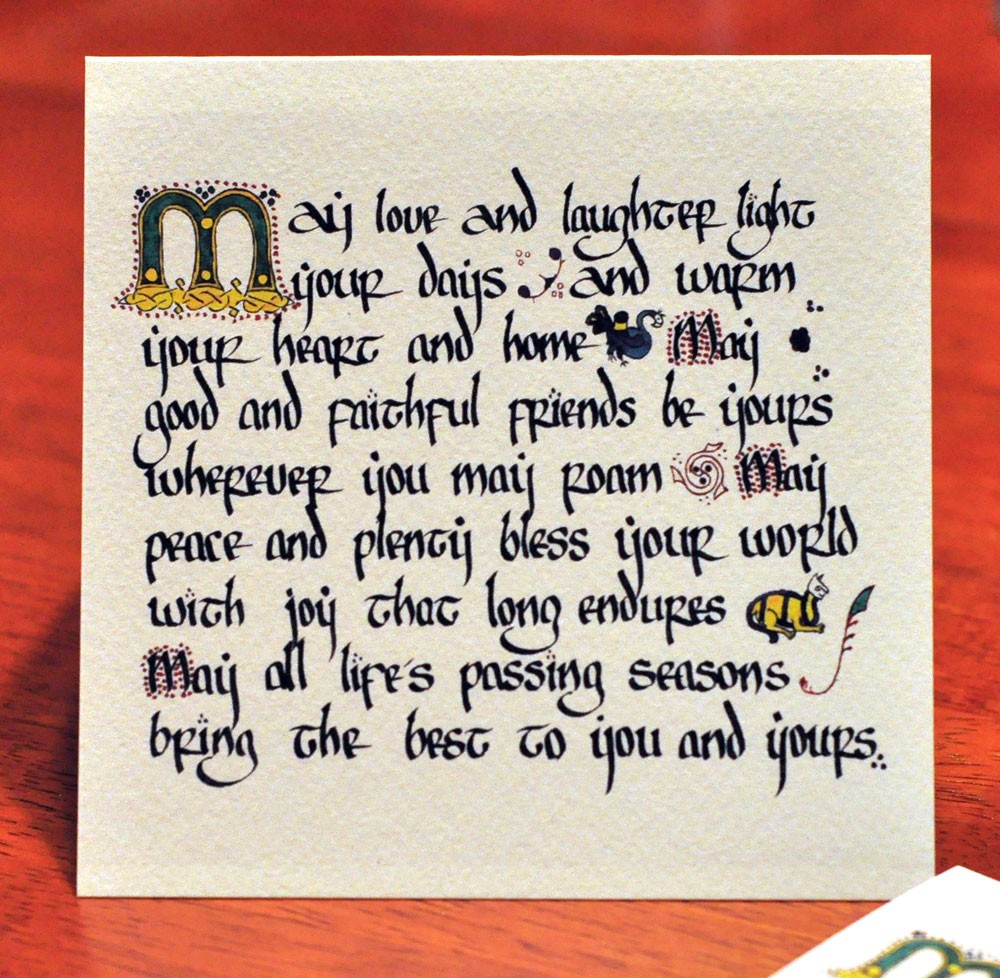 May love and laughter light
your days and warm
your heart and home May
good and faithful friends be yours
wherever you may roam May
peace and plenty bless your world
with joy that long endures
May all life's passing seasons
bring the best to you and yours